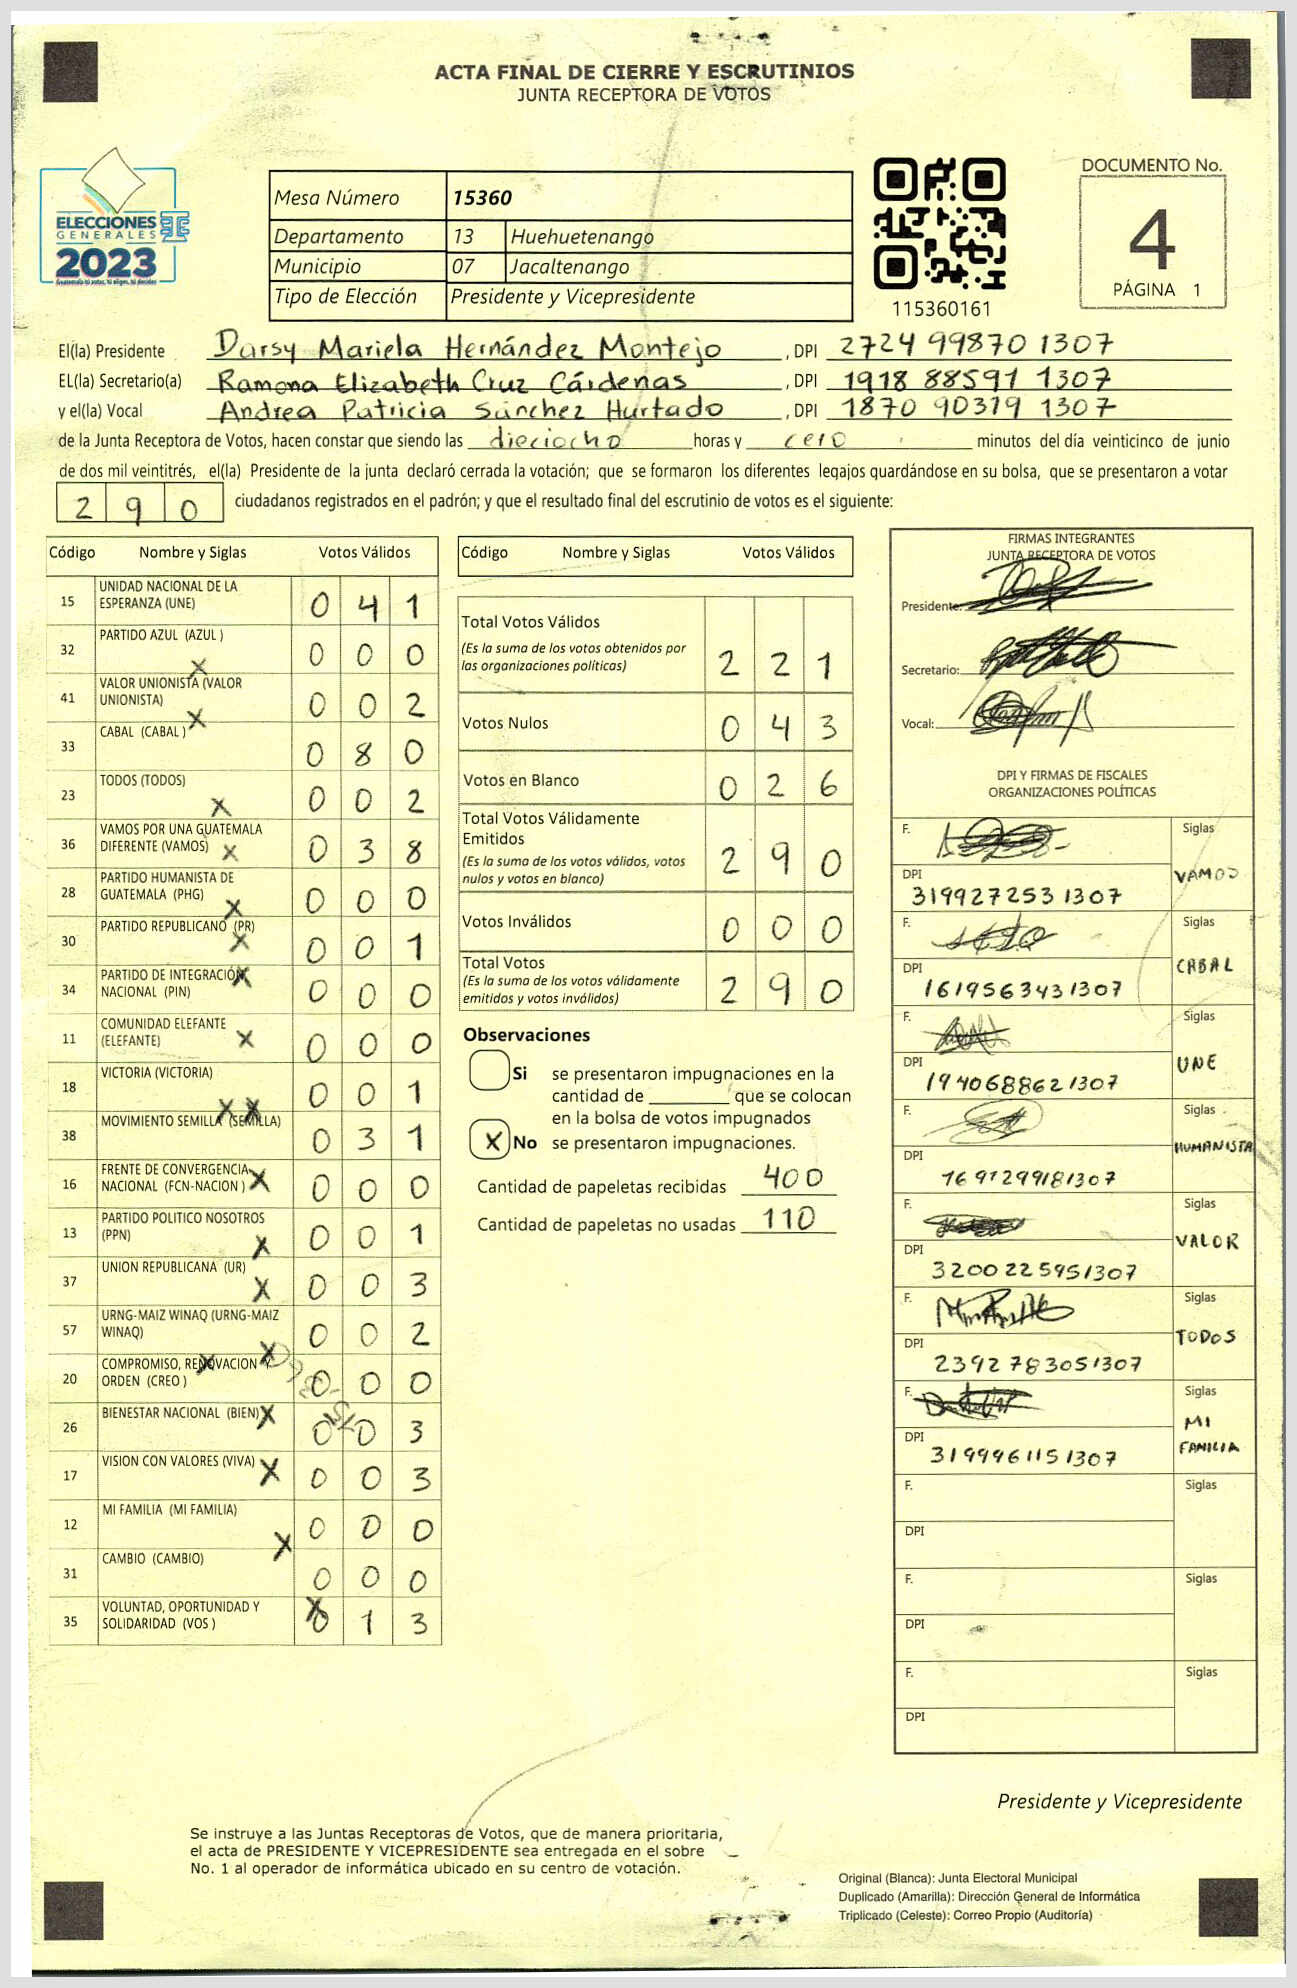 ACTA FINAL DE CIERRE Y ESCRUTINIOS
JUNTA RECEPTORA DE VOTOS
ELECCIONES
GENERALES
2023
Mesa Número 15360
Departamento 13 Huehuetenango
Municipio 07 Jacaltenango
Tipo de Elección Presidente y Vicepresidente
115360161
DOCUMENTO No.
4
PÁGINA 1
El(la) Presidente Darsy Mariela Hernández Montejo , DPI 2724 99870 1307
EL(la) Secretario(a) Ramona Elizabeth Cruz Cárdenas , DPI 1918 88591 1307
y el(la) Vocal Andrea Patricia Sánchez Hurtado , DPI 1870 90319 1307
de la Junta Receptora de Votos, hacen constar que siendo las dieciocho horas y cero minutos del día veinticinco de junio
de dos mil veintitrés, el(la) Presidente de la junta declaró cerrada la votación; que se formaron los diferentes legajos quardándose en su bolsa, que se presentaron a votar
290 ciudadanos registrados en el padrón; y que el resultado final del escrutinio de votos es el siguiente:
Código Nombre y Siglas Votos Válidos
15 UNIDAD NACIONAL DE LA ESPERANZA (UNE) 0 4 1
32 PARTIDO AZUL (AZUL ) 0 0 0
41 VALOR UNIONISTA (VALOR UNIONISTA) 0 0 2
33 CABAL (CABAL ) 0 8 0
23 TODOS (TODOS) 0 0 2
36 VAMOS POR UNA GUATEMALA DIFERENTE (VAMOS) 0 3 8
28 PARTIDO HUMANISTA DE GUATEMALA (PHG) 0 0 0
30 PARTIDO REPUBLICANO (PR) 0 0 1
34 PARTIDO DE INTEGRACIÓN NACIONAL (PIN) 0 0 0
11 COMUNIDAD ELEFANTE (ELEFANTE) 0 0 0
18 VICTORIA (VICTORIA) 0 0 1
38 MOVIMIENTO SEMILLA (SEMILLA) 0 3 1
16 FRENTE DE CONVERGENCIA NACIONAL (FCN-NACION ) 0 0 0
13 PARTIDO POLITICO NOSOTROS (PPN) 0 0 1
37 UNION REPUBLICANA (UR) 0 0 3
57 URNG-MAIZ WINAQ (URNG-MAIZ WINAQ) 0 0 2
20 COMPROMISO, RENOVACION Y ORDEN (CREO ) 0 0 0
26 BIENESTAR NACIONAL (BIEN) 0 0 3
17 VISION CON VALORES (VIVA) 0 0 3
12 MI FAMILIA (MI FAMILIA) 0 0 0
31 CAMBIO (CAMBIO) 0 0 0
35 VOLUNTAD, OPORTUNIDAD Y SOLIDARIDAD (VOS ) 0 1 3
Código Nombre y Siglas Votos Válidos
Total Votos Válidos 2 2 1
(Es la suma de los votos obtenidos por
las organizaciones políticas)
Votos Nulos 0 4 3
Votos en Blanco 0 2 6
Total Votos Válidamente
Emitidos 2 9 0
(Es la suma de los votos válidos, votos
nulos y votos en blanco)
Votos Inválidos 0 0 0
Total Votos 2 9 0
(Es la suma de los votos válidamente
emitidos y votos inválidos)
Observaciones
Si se presentaron impugnaciones en la
cantidad de ________ que se colocan
en la bolsa de votos impugnados
X No se presentaron impugnaciones.
Cantidad de papeletas recibidas 400
Cantidad de papeletas no usadas 110
FIRMAS INTEGRANTES
JUNTA RECEPTORA DE VOTOS
Presidente:
Secretario:
Vocal:
DPI Y FIRMAS DE FISCALES
ORGANIZACIONES POLÍTICAS
F. Siglas VAMOS
DPI 319927253 1307
F. Siglas CABAL
DPI 1619563431307
F. Siglas UNE
DPI 1940688621307
F. Siglas HUMANISTA
DPI 1691299181307
F. Siglas VALOR
DPI 3200225951307
F. Siglas TODOS
DPI 2392783051307
F. Siglas MI FAMILIA
DPI 3199961151307
F. Siglas
DPI
F. Siglas
DPI
F. Siglas
DPI
Presidente y Vicepresidente
Se instruye a las Juntas Receptoras de Votos, que de manera prioritaria,
el acta de PRESIDENTE Y VICEPRESIDENTE sea entregada en el sobre
No. 1 al operador de informática ubicado en su centro de votación.
Original (Blanca): Junta Electoral Municipal
Duplicado (Amarilla): Dirección General de Informática
Triplicado (Celeste): Correo Propio (Auditoría)